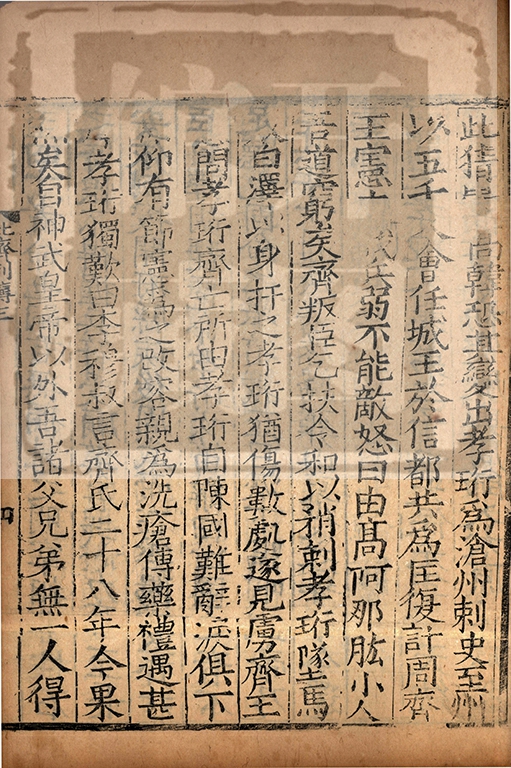 此猜高韓恐其變出孝珩為滄州刺史至州
以五千人會任城王於信都共為匡復計周齊
王憲兵弱不能敵怒曰由高阿那肱小人
吾道窮矣齊叛臣乞扶令和以矟刺孝珩隊馬
奴白澤以身扞之孝珩猶傷數處遂見虜齊王
問孝珩齊亡所由孝珩自陳國難辭淚俱下
仰有節憲為之改容親為洗瘡傅藥禮遇甚
孝珩獨歎曰李穆叔言齊氏二十八年今果
矣自神武皇帝以外吾諸父兄弟無一人得
北齊列傳三
四